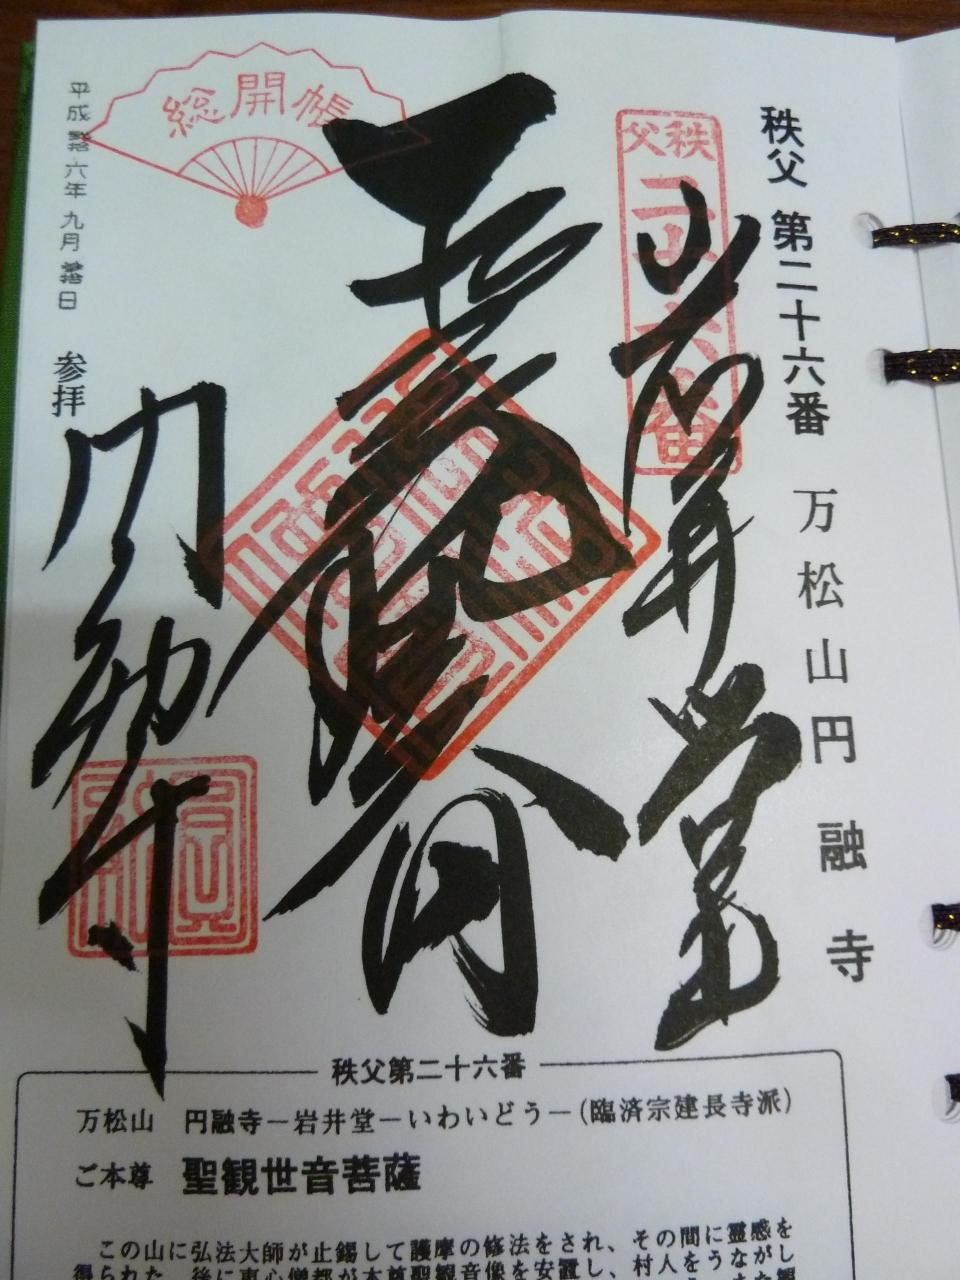 秩父 第二十六番 万松山円融寺
秩父
二十六番
岩井堂
総開帳
円融寺
平成弐拾六年九月 日 参拝
秩父第二十六番
万松山 円融寺－岩井堂－いわいどう－(臨済宗建長寺派)
ご本尊 聖観世音菩薩
この山に弘法大師が止錫して護摩の修法をされ、その間に霊感を
得られた。後に恵心僧都が本尊聖観音像を安置し、村人をうながし